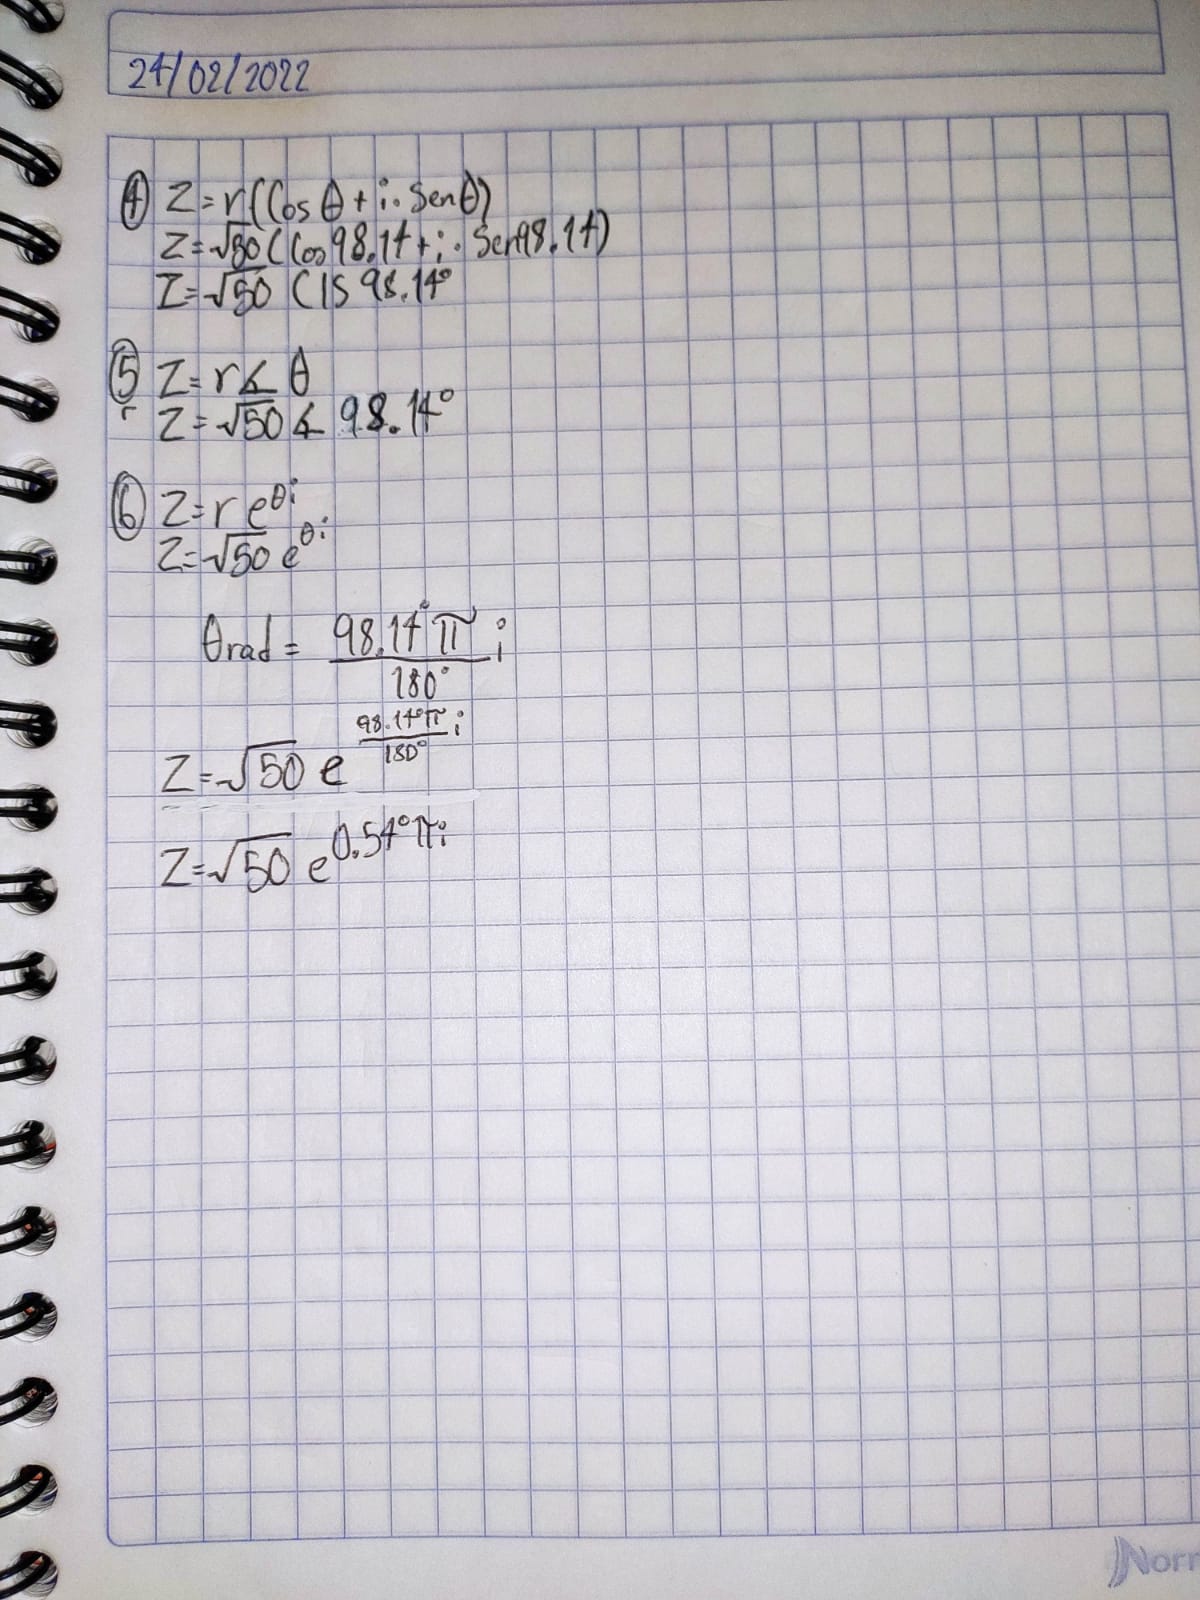 24/02/2022
④ Z=r(Cos θ+i·Senθ)
Z=√50(Cos98.14+i·Sen98.14)
Z=√50 CIS 98.14°
⑤ Z=r∡ θ
Z=√50∡ 98.14°
⑥ Z=r e^θi
Z=√50 e^θi
θrad = 98.14°π/180° i
Z=√50 e^98.14°π/180° i
Z=√50 e^0.54°πi
Norr